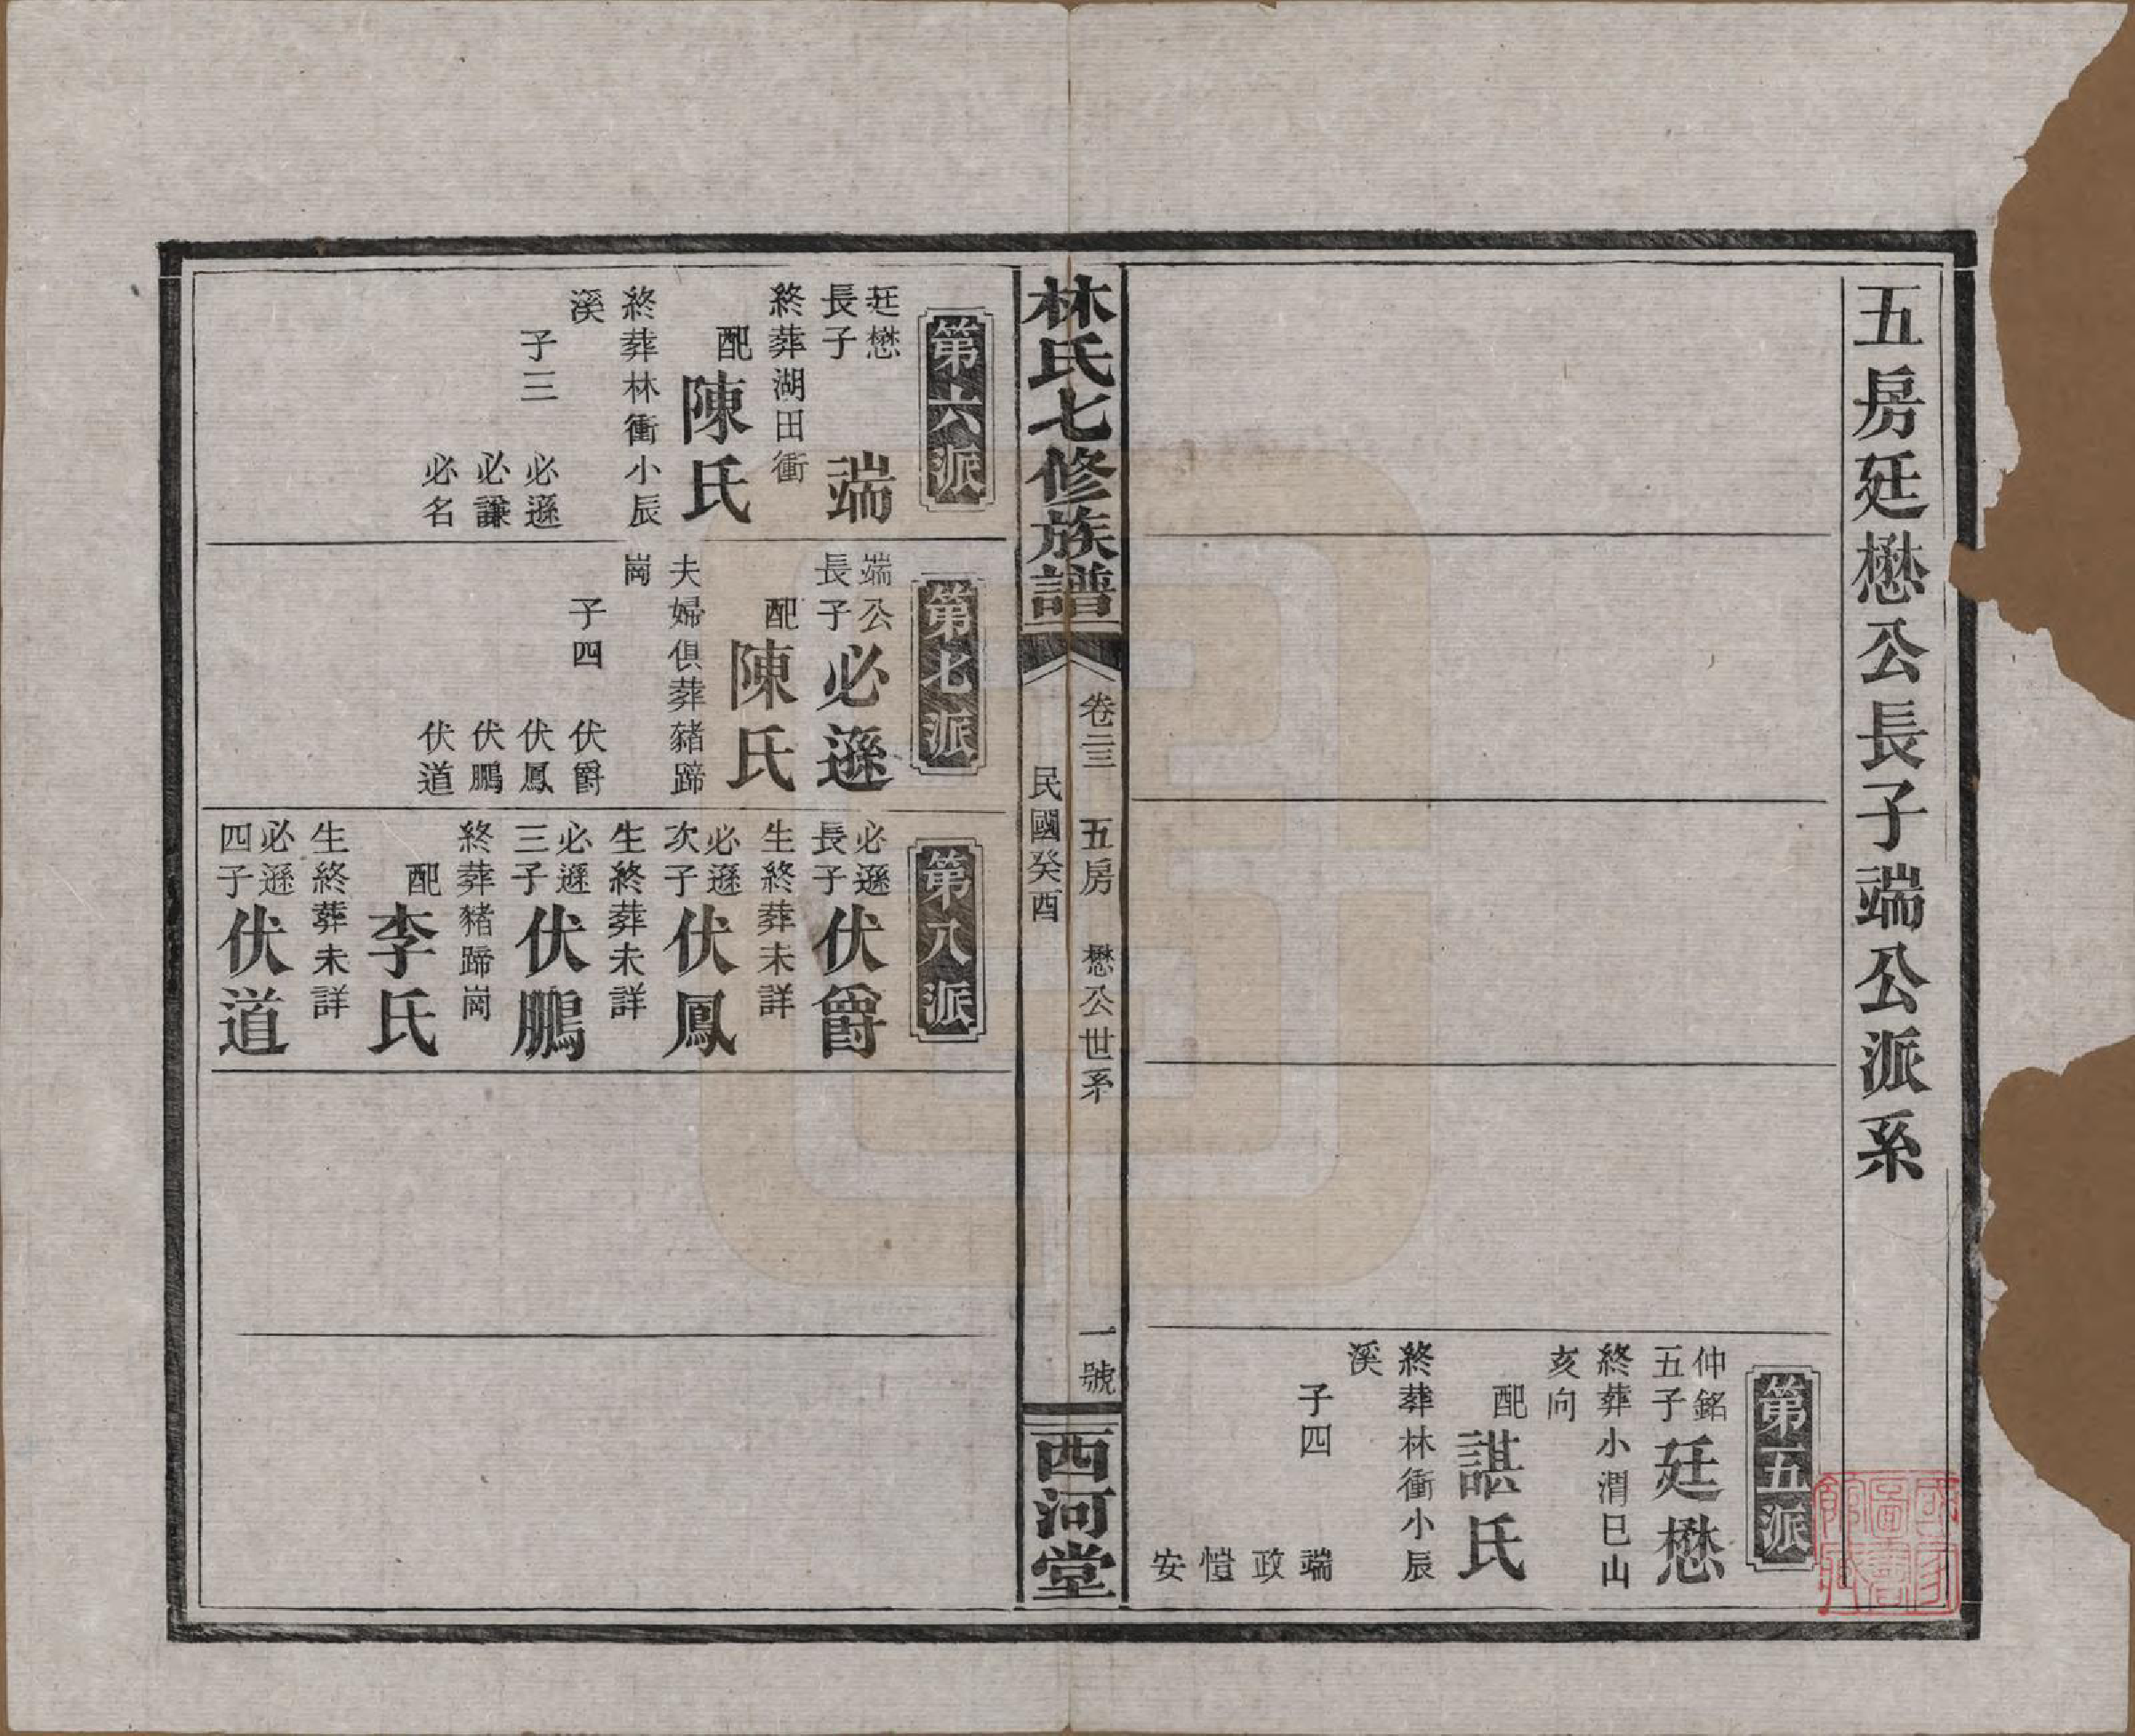 五房廷懋公長子端公派系
第五派
仲銘
五子
廷懋
終葬小渭巳山
亥向
配
諶氏
終葬林衝小辰
溪
子四
端
政
愷
安
林氏七修族譜
卷二三
五房
懋公世系
一號
民國癸酉
西河堂
第六派
廷懋
長子
端
終葬湖田衝
配
陳氏
終葬林衝小辰
溪
子三
必遜
必謙
必名
第七派
端公
長子
必遜
配
陳氏
夫婦俱葬豬蹄
崗
子四
伏爵
伏鳳
伏鵬
伏道
第八派
必遜
長子
伏爵
生終葬未詳
必遜
次子
伏鳳
生終葬未詳
必遜
三子
伏鵬
終葬豬蹄崗
配
李氏
生終葬未詳
必遜
四子
伏道
國家
圖書
館藏